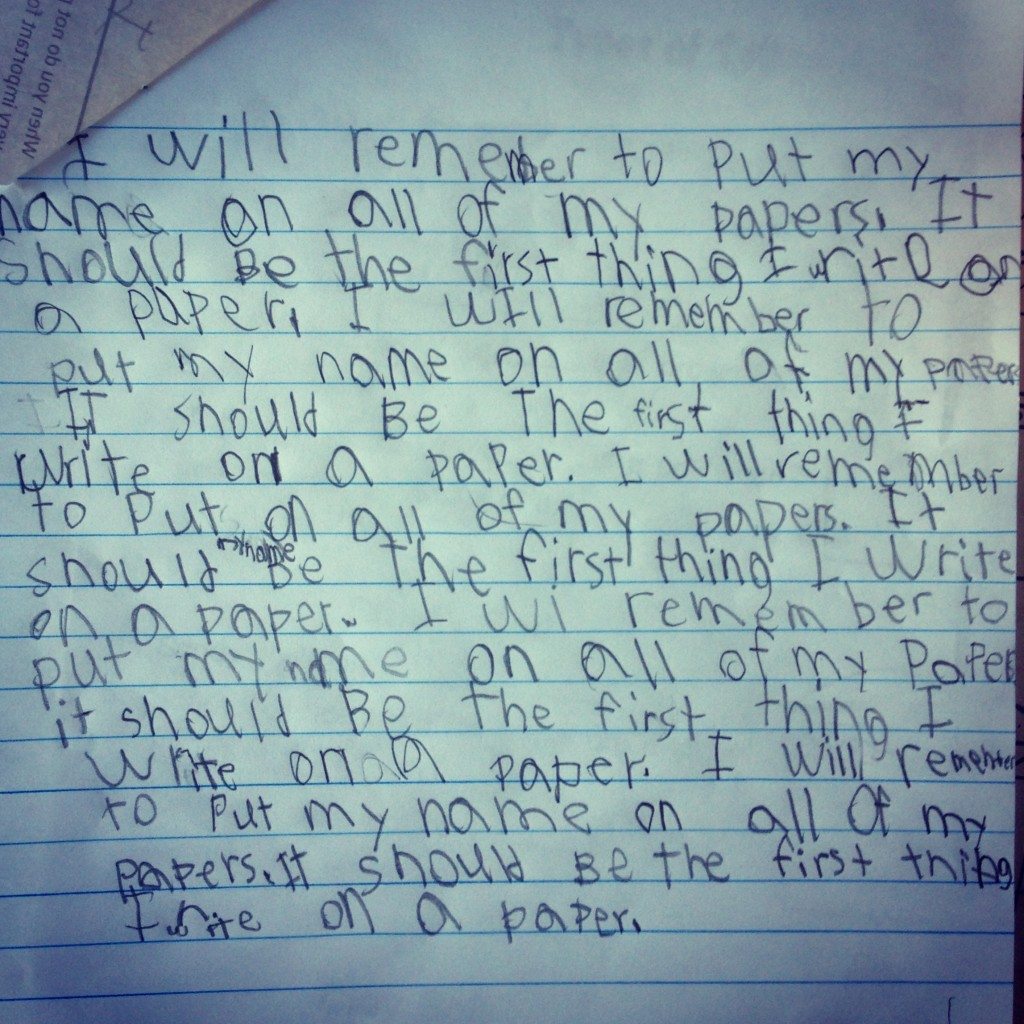 When you do not
very important to
t
I will remember to put my
name on all of my papers. It
should Be the first thing I write on
a paper. I wIll remember to
put my name on all of my papers
It should Be The first thing I
write on a paper. I will remember
to put on all of my papers. It
my name
should Be The first thing I write
on a paper. I wil remember to
put my name on all of my Paper
it should Be The first thing I
write on a a paper. I will remember
to put my name on all of my
papers. It should Be the first thing
I write on a paper.